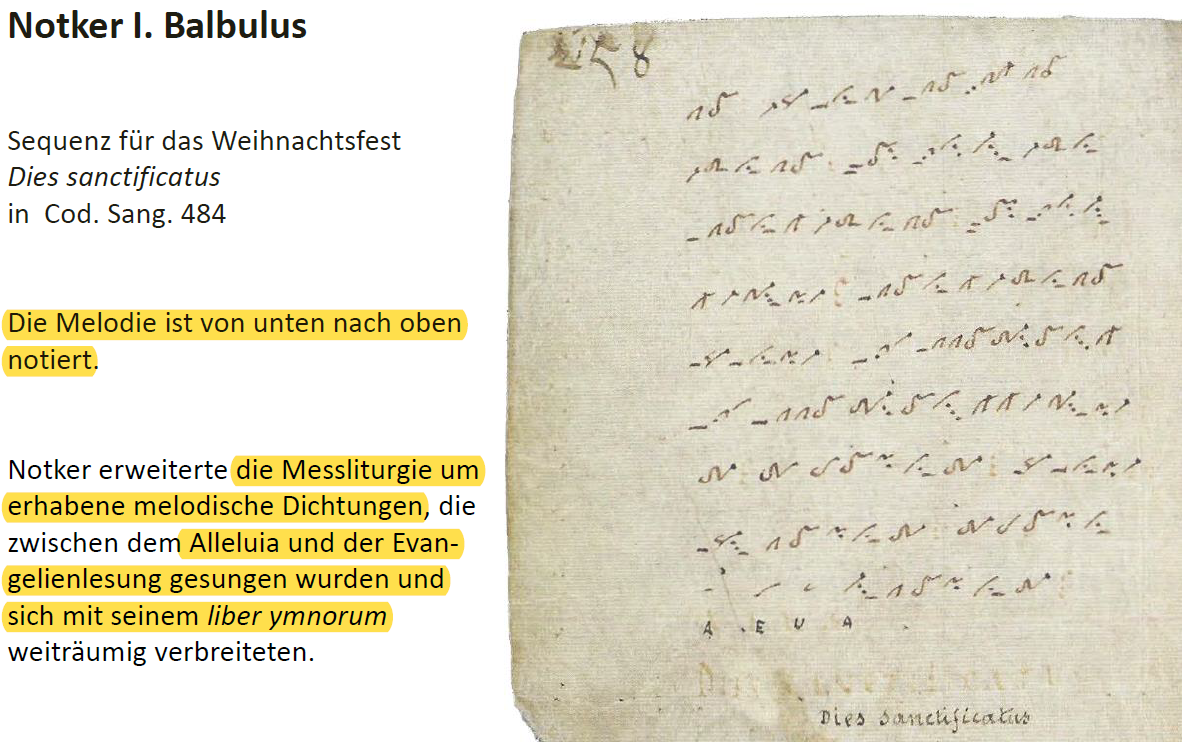 Notker I. Balbulus
Sequenz für das Weihnachtsfest
Dies sanctificatus
in Cod. Sang. 484
Die Melodie ist von unten nach oben
notiert.
Notker erweiterte die Messliturgie um
erhabene melodische Dichtungen, die
zwischen dem Alleluia und der Evan-
gelienlesung gesungen wurden und
sich mit seinem liber ymnorum
weiträumig verbreiteten.
A E U A
Dies sanctificatus